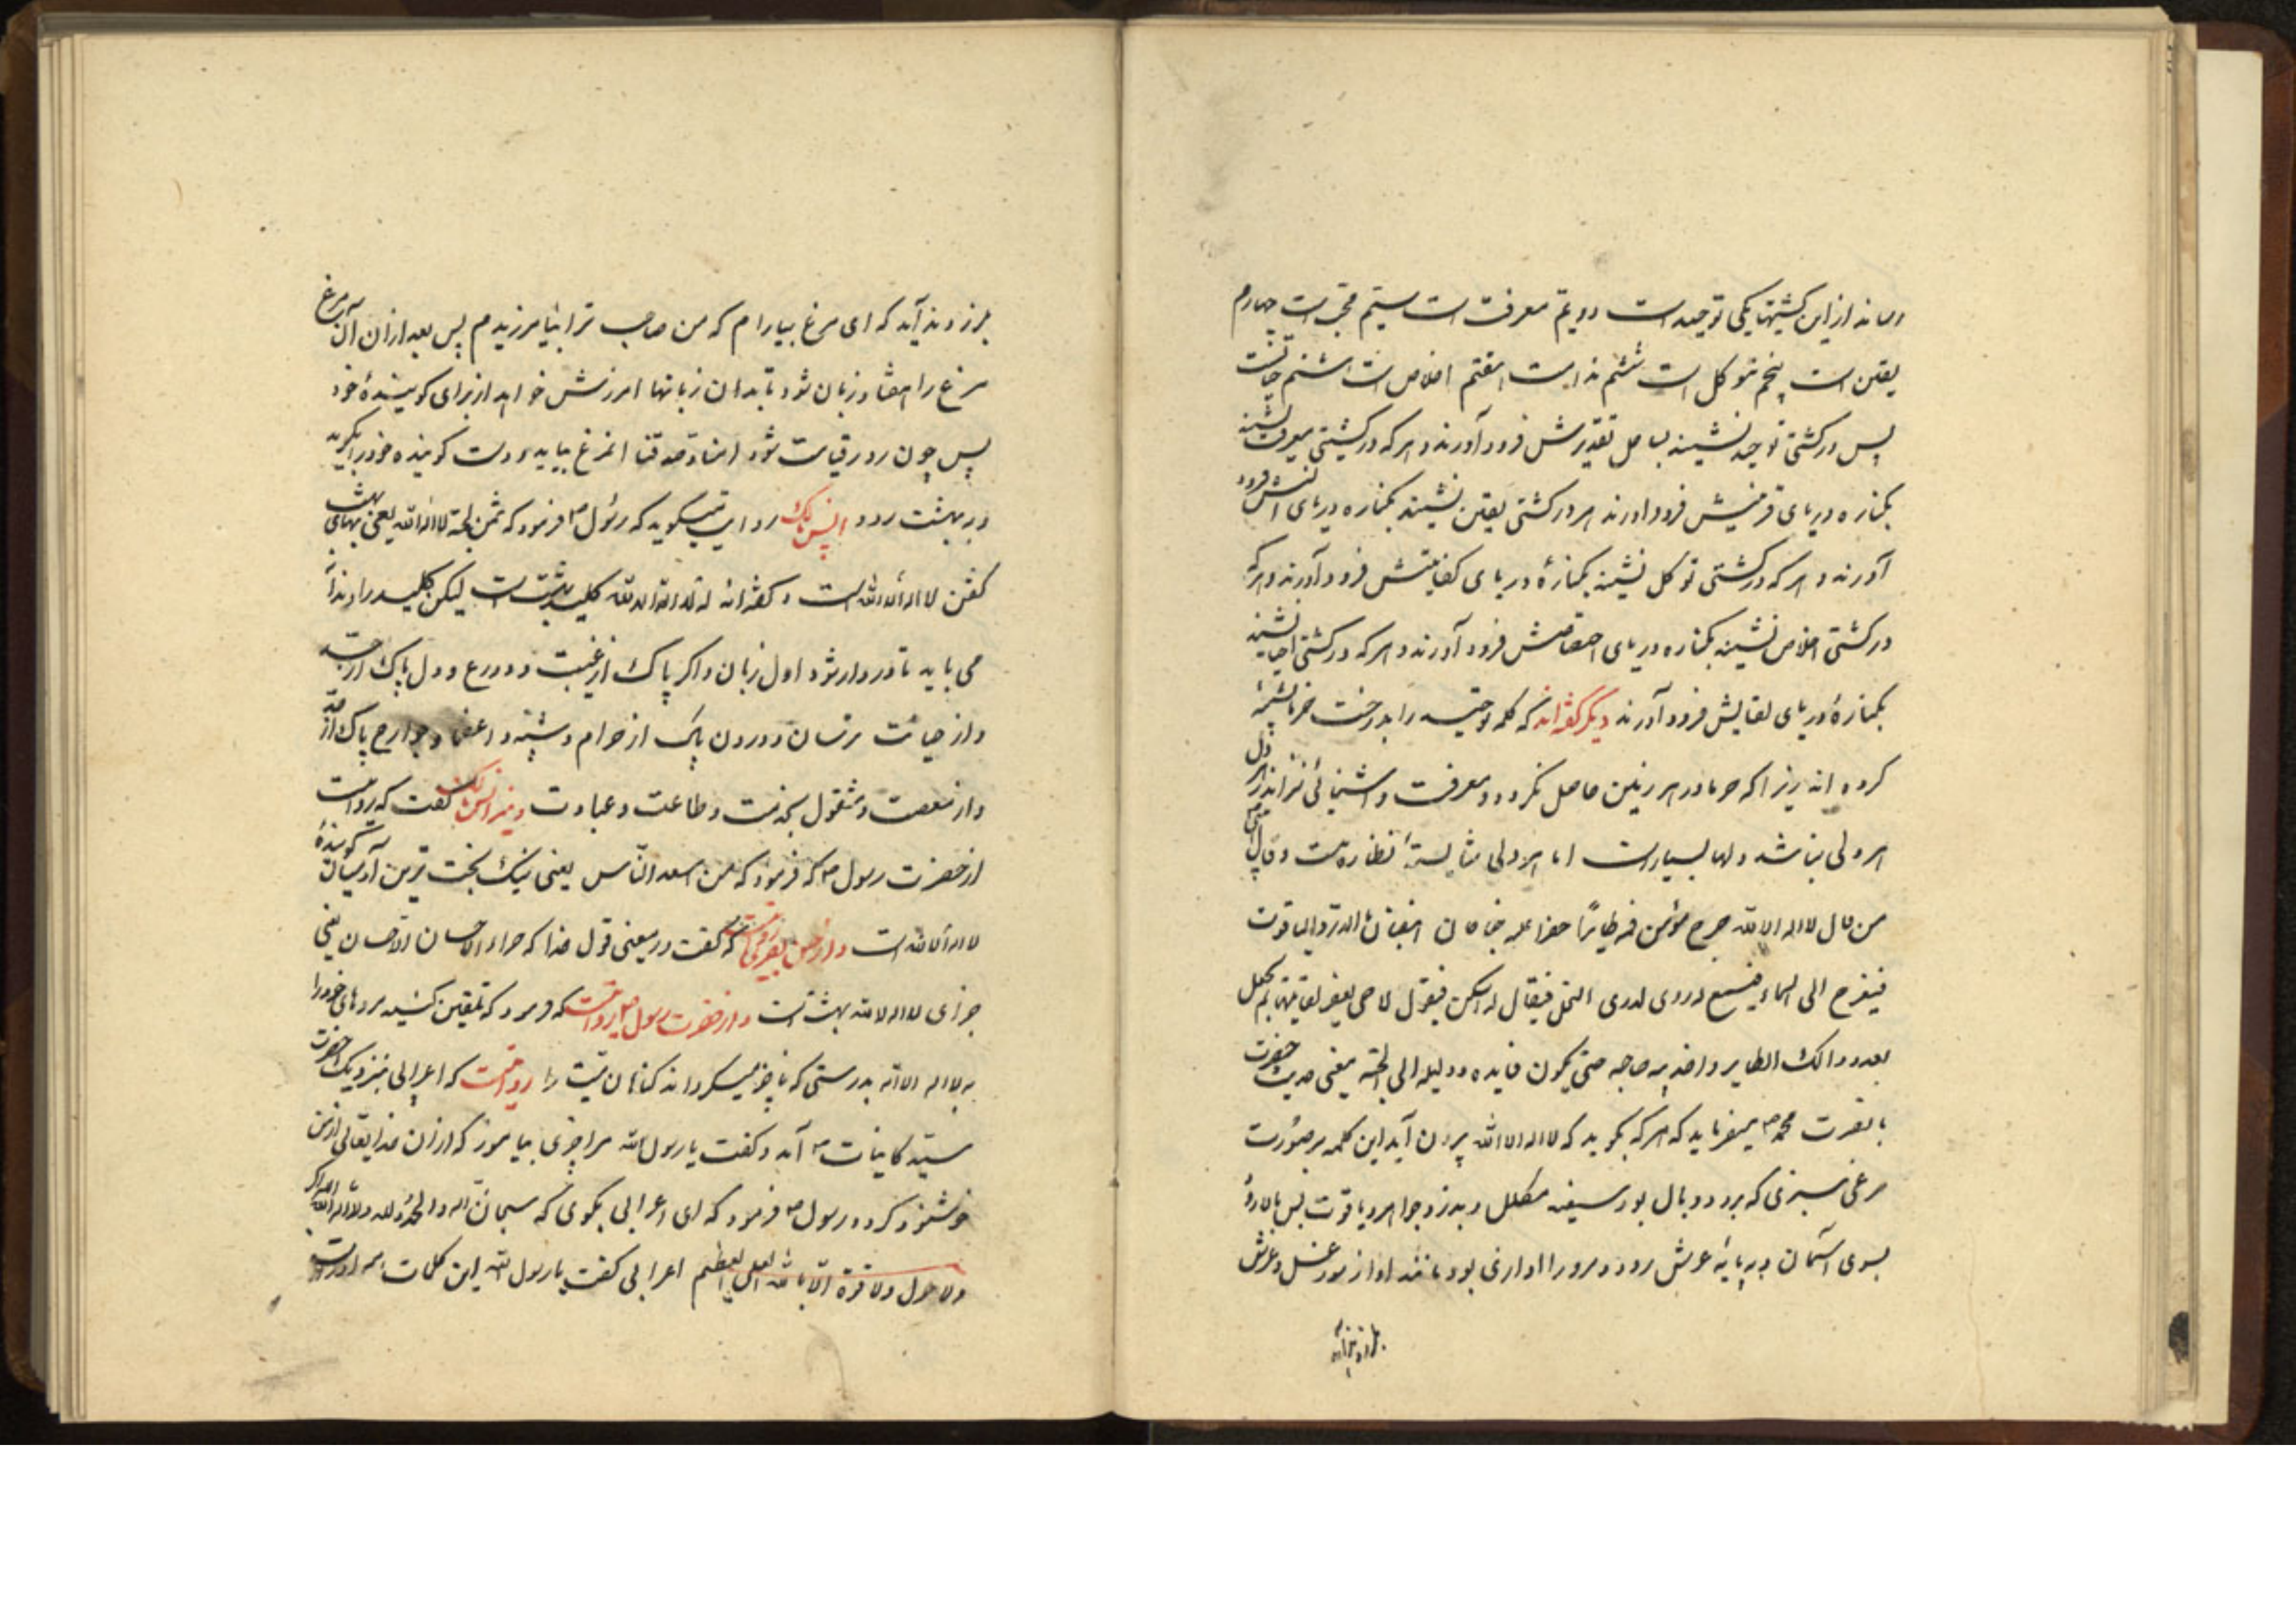 از این کشتیها یکی توحید است دویم معرفت است سیّم محبّت است چهارم
یقین است پنجم توکل است ششم است هفتم اخلاص است هشتم
پس در کشتی توحید نشیند بساحل تقدیرش فرود آورند و هر که در کشتی معرفت نشیند
بکناره دریای فرود اورند هر در کشتی یقین نشیند بکناره دریای انسش فرود
آورند و هر که در کشتی توکل نشیند بکنارهٔ دریای کفایتش فرود آورند و هر که
در کشتی اخلاص نشیند بکناره دریای اختصاصش فرود آورند و هر که در کشتی نشیند
بکنارهٔ دریای لقایش فرود آورند دیگر گفته‌اند که کلمه توحید را بدرخت خرما تشبیه
کرده اند زیرا که خرما در هر زمین حاصل نکردد و معرفت و اشنائی نیز اندر هر دل
هر دلی نباشد دلها بسیار است اما هر دلی شایستهٔ نظاره نیست و قال
من قال لا اله الا الله خرج من فمه طایرًا خضرا له جناحان ابیضان بالدرّ والیاقوت
فیعرج الی السماء فیسمع له دوی کدوی النحل فیقال له اسکن فیقول لا حتی یغفر لقایلها
بعد ذالک الطایر واخذ بید صاحبه حتی یکون قایده و دلیله الی الجنّه یعنی حدیث حضرت
محمّد ص میفرماید که هر که بگوید که لا اله الا الله بیرون آید این کلمه بر صورت
مرغی سبزی که بر دو بال بود سیفد مکلل و بدرّ و جواهر و یاقوت پس بالا رود
بسوی آسمان و بپایهٔ عرش رود و مرورا اوازی بود مانند اواز مور عسل و عرش
بلرزد ندا آید که ای مرغ بیارام که من صاحب ترا بیامرزیدم پس بعد از ان آن مرغ
مرغ را هفتاد زبان شود تا بدان زبانها امرزش خواهد از برای کوینده خود
پس چون روز قیامت شود انمرغ بیاید و دست کوینده خود را بگیرد
و ببهشت رود انس مالک روایت میکوید که رسول ص فرمود که ثمن الجنّة لا اله الا الله یعنی بهای بهشت
گفتن لا اله الا الله است و گفته‌اند لا اله الا الله کلید بهشت است لیکن کلید را دندانه
می باید تا در وا شود اول زبان ذاکر پاک از غیبت و دروغ و دل پاک از حسد
و از خیانت ترسان و درون پاک از حرام و شبهه و اعضا و جوارح پاک از
و از معصیت و مشغول بخدمت و طاعت و عبادت و نیز انس مالک گفت که روایت
از حضرت رسول ص که فرمود که من اسعد النّاس یعنی نیک بخت ترین آدمیان گویندهٔ
لا اله الا الله است و از حسن بصری روایت که گفت در معنی قول خدا که جزاء الاحسان الا الاحسان یعنی
جزای لا اله الا الله بهشت است و از حضرت رسول ص روایت که فرمود که تلقین کنید مرده‌های خود را
به لا اله الا الله بدرستی که ناچیز میکرداند کناهان میّت را روایت که اعرابی بنزدیک حضرت
سیّد کاینات ص آمد و گفت یا رسول الله مرا چیزی بیاموز که از ان خدایتعالی از من
خوشنود کردد رسول ص فرمود که ای اعرابی بگوی که سبحان الله والحمد لله ولا اله الا الله والله اکبر
ولا حول ولا قوة الا بالله العلی العظیم اعرابی گفت یا رسول الله این کلمات همه